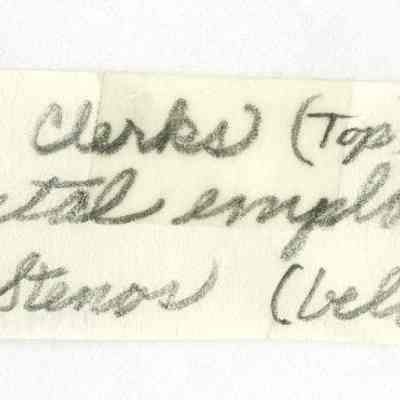 Clerks (Top)
stal emplo
Stenos (bel